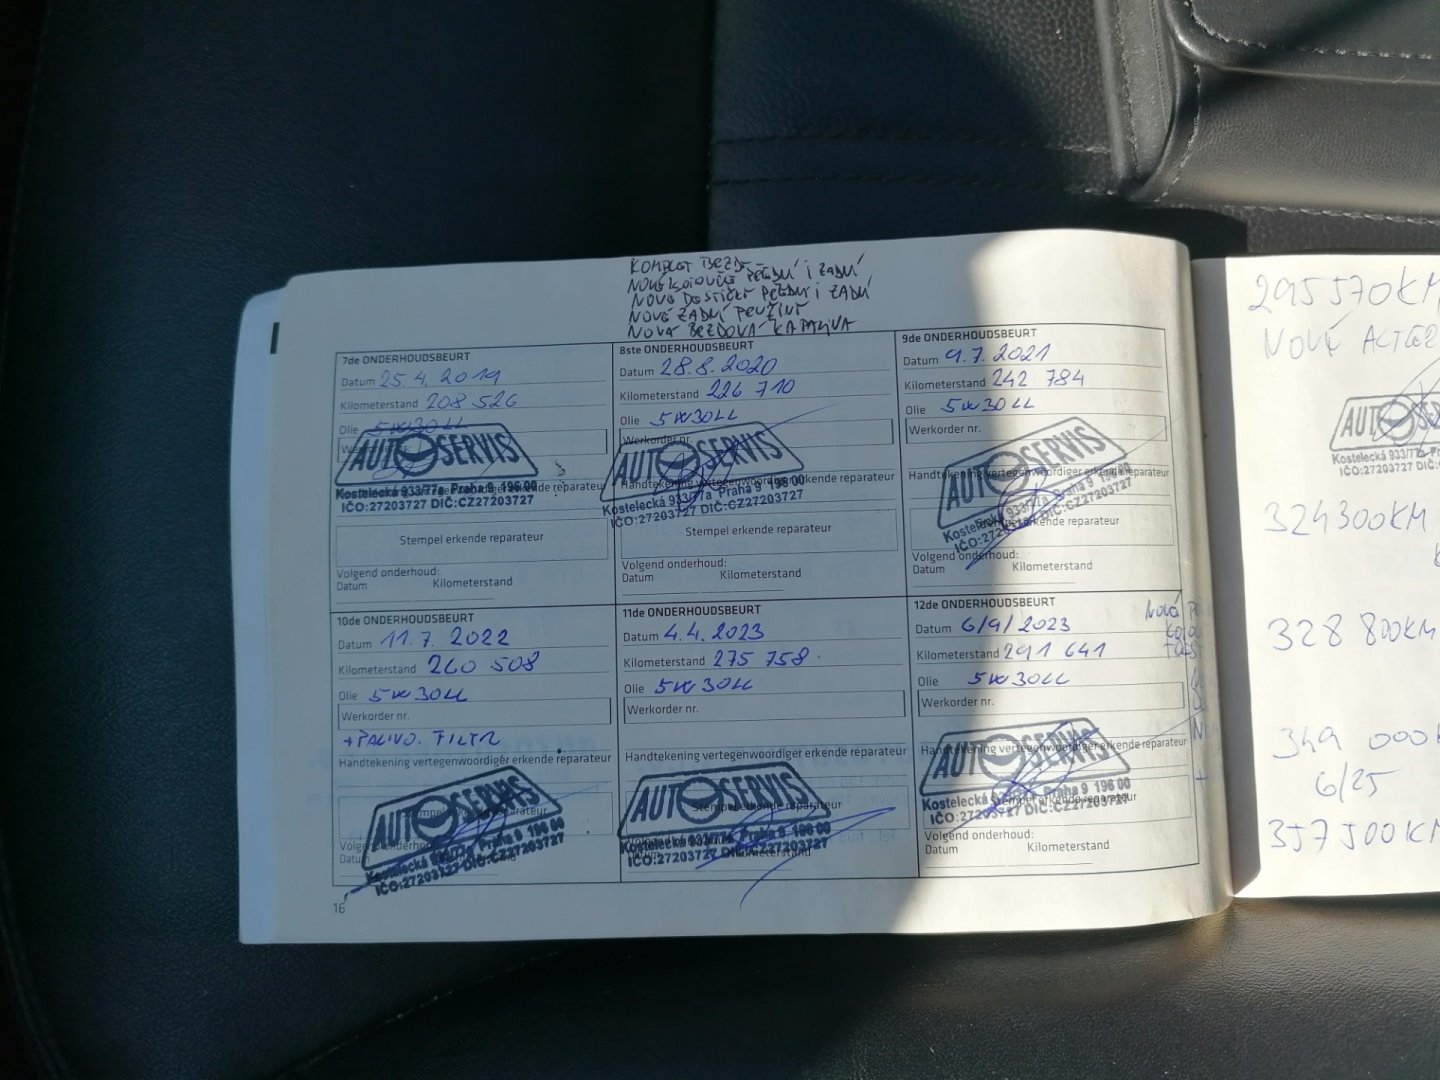 KOMPLET BRZDY
NOVÉ KOTOUČE PŘEDNÍ I ZADNÍ
NOVÉ DESTIČKY PŘEDNÍ I ZADNÍ
NOVÉ ZADNÍ PRUŽINY
NOVÁ BRZDOVÁ KAPALINA
7de ONDERHOUDSBEURT
Datum 25.4. 2019
Kilometerstand 208 526
Olie 5W30LL
AUTOSERVIS
Kostelecká 933/77a Praha 9 196 00
IČO:27203727 DIČ:CZ27203727
Stempel erkende reparateur
Volgend onderhoud:
Datum Kilometerstand
8ste ONDERHOUDSBEURT
Datum 28.8. 2020
Kilometerstand 226 710
Olie 5W30LL
Werkorder nr.
AUTOSERVIS
Handtekening vertegenwoordiger erkende reparateur
Kostelecká 933/77a Praha 9 196 00
IČO:27203727 DIČ:CZ27203727
Stempel erkende reparateur
Volgend onderhoud:
Datum Kilometerstand
9de ONDERHOUDSBEURT
Datum 9.7. 2021
Kilometerstand 242 784
Olie 5W30LL
Werkorder nr.
AUTOSERVIS
Handtekening vertegenwoordiger erkende reparateur
Kostelecká 933/77a Praha 9 196 00
DIČ:CZ27203727
erkende reparateur
Volgend onderhoud:
Datum Kilometerstand
10de ONDERHOUDSBEURT
Datum 11.7. 2022
Kilometerstand 260 508
Olie 5W30LL
Werkorder nr.
+PALIVO. FILTR
Handtekening vertegenwoordiger erkende reparateur
AUTOSERVIS
Kostelecká 933/77a Praha 9 196 00
IČO:27203727 DIČ:CZ27203727
Datum
16
11de ONDERHOUDSBEURT
Datum 4.4. 2023
Kilometerstand 275 758
Olie 5W30LL
Werkorder nr.
Handtekening vertegenwoordiger erkende reparateur
AUTOSERVIS
Stempel erkende reparateur
Kostelecká 933/77a Praha 9 196 00
IČO:27203727 DIČ:CZ27203727
Kilometerstand
12de ONDERHOUDSBEURT
Datum 6/9/2023
Kilometerstand 291 641
Olie 5W30LL
Werkorder nr.
Handtekening vertegenwoordiger erkende reparateur
AUTOSERVIS
Kostelecká 933/77a Praha 9 196 00
Stempel erkende reparateur
IČO:27203727 DIČ:CZ27203727
Volgend onderhoud:
Datum Kilometerstand
NOVÁ
295570KM
NOVÝ ALTER
AUTOSE
Kostelecká 933/77a P
IČO:27203727 DIČ:C
324300KM
328 800KM
349 000K
6/25
357500KM